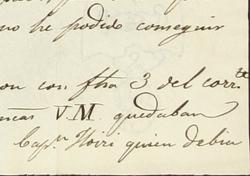 no he podido conseguir
on con fha 3 del corrte
ncas V.M. quedaban
Capn Hoiri quien debia